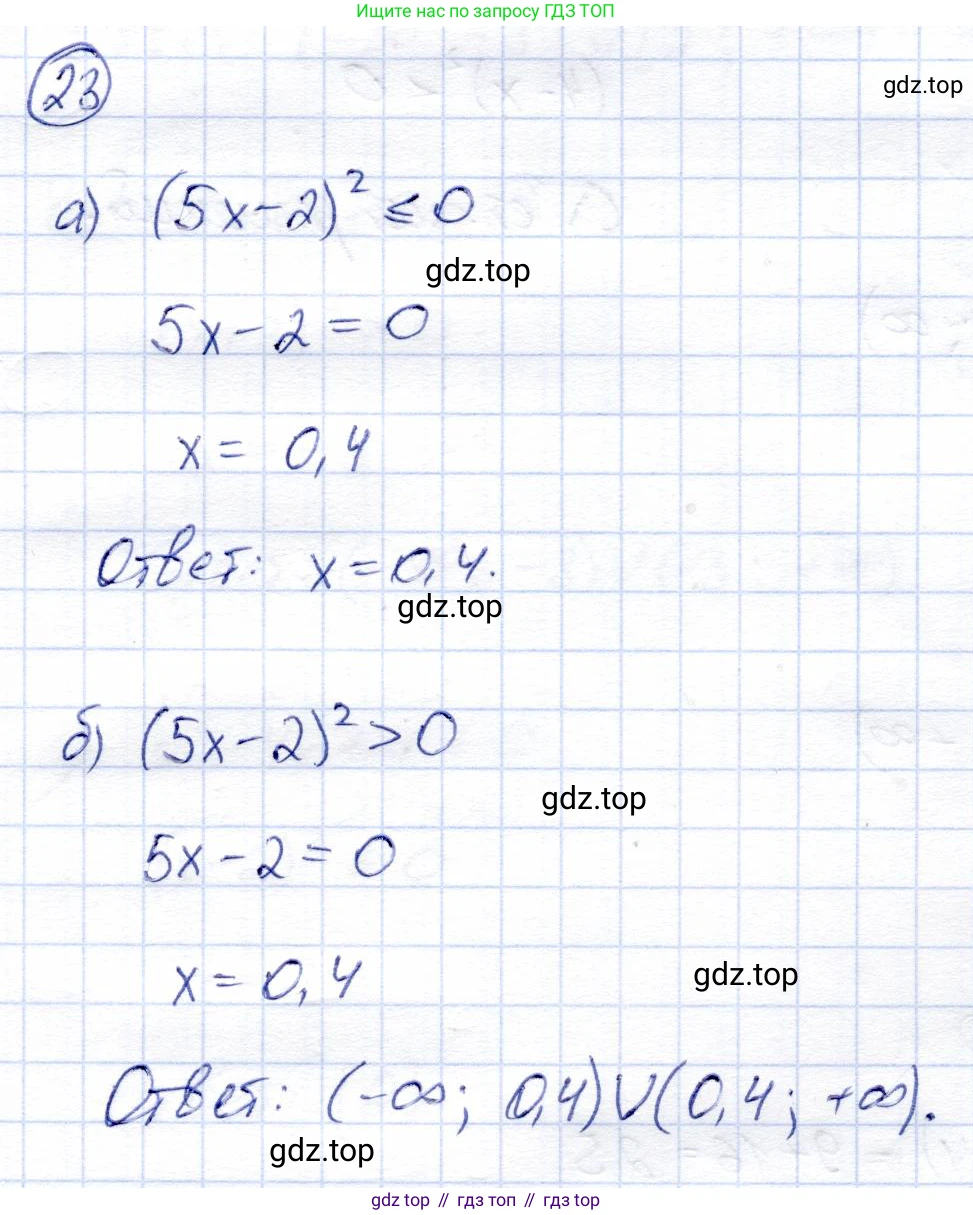 Ищите нас по запросу ГДЗ ТОП
23
gdz.top
а) (5x-2)² ≤ 0
gdz.top
5x-2=0
x = 0,4
Ответ: x=0,4.
gdz.top
б) (5x-2)²>0
gdz.top
5x-2=0
x=0,4
gdz.top
Ответ: (-∞; 0,4)∪(0,4; +∞).
gdz.top
gdz top // гдз топ // гдз top